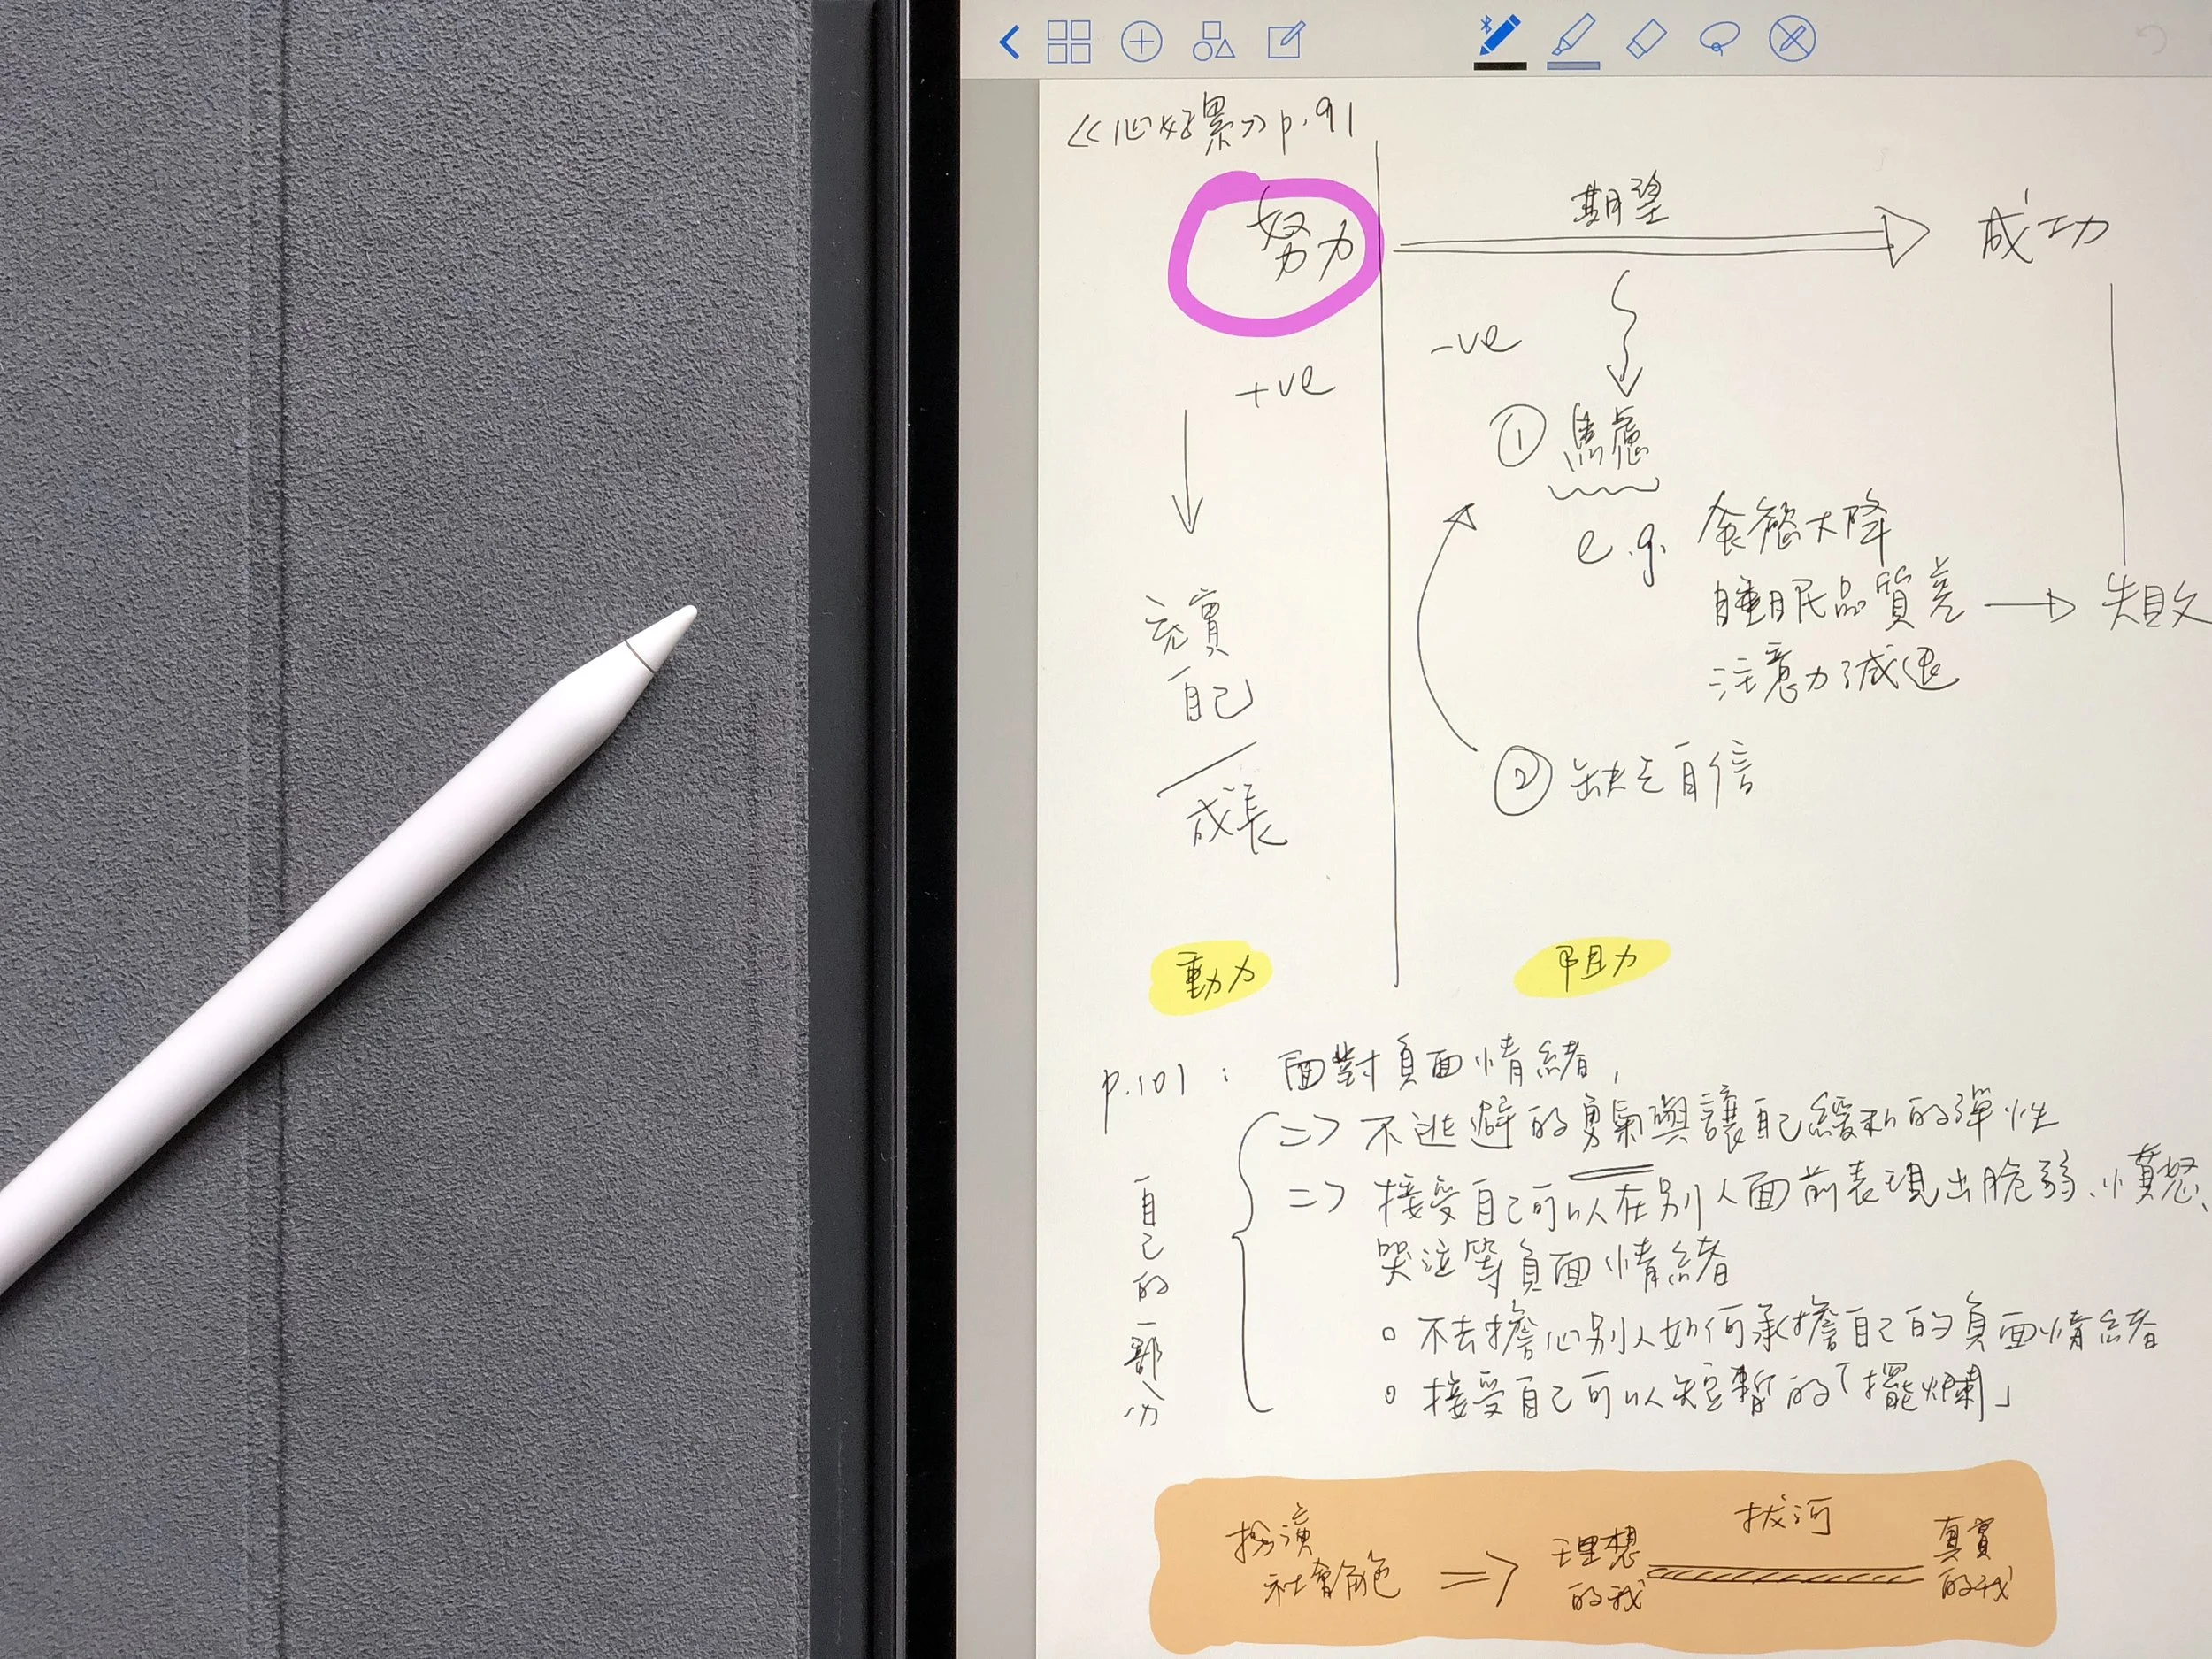 《心好累》p.91
努力
期望
成功
+ve
-ve
① 焦慮
e.g. 食慾大降
睡眠品質差
失敗
注意力減退
充實
自己
成長
② 缺乏自信
動力
阻力
p.101：面對負面情緒，
=> 不逃避的勇氣與讓自己緩和的彈性
=> 接受自己可以在別人面前表現出脆弱、憤怒、
哭泣等負面情緒
○ 不去擔心別人如何承擔自己的負面情緒
○ 接受自己可以短暫的「擺爛」
自己的一部分
扮演
社會角色
=>
理想
的我
拔河
真實
的我